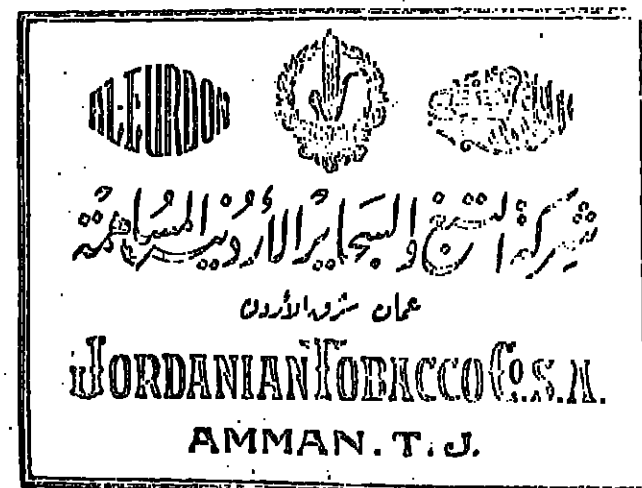 AL-EURDON
شركة التبغ والسجاير الأردنية المساهمة
عمان شرق الأردن
JORDANIAN TOBACCO Co. S.A.
AMMAN. T. J.